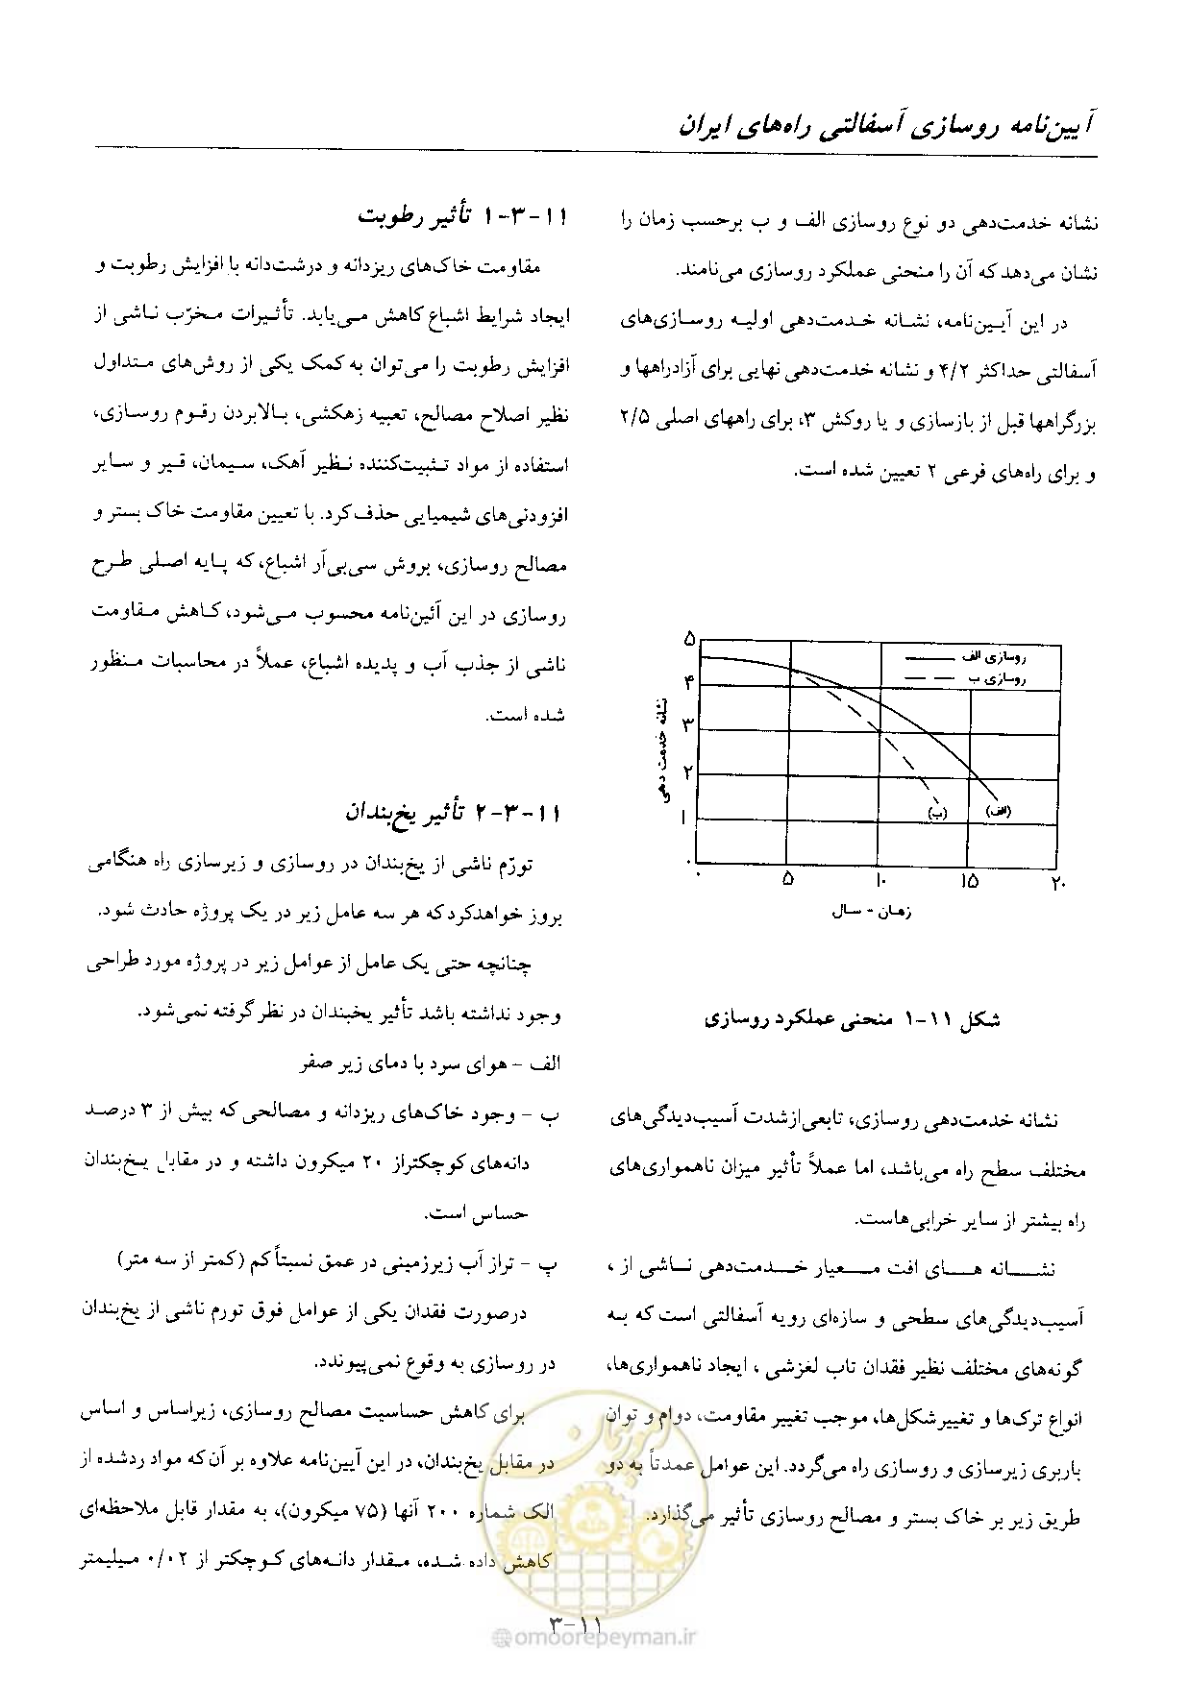 آیین‌نامه روسازی آسفالتی راه‌های ایران
نشانه خدمت‌دهی دو نوع روسازی الف و ب برحسب زمان را
نشان می‌دهد که آن را منحنی عملکرد روسازی می‌نامند.
در این آیین‌نامه، نشانه خدمت‌دهی اولیه روسازی‌های
آسفالتی حداکثر ۴/۲ و نشانه خدمت‌دهی نهایی برای آزادراهها و
بزرگراهها قبل از بازسازی و یا روکش ۳، برای راههای اصلی ۲/۵
و برای راه‌های فرعی ۲ تعیین شده است.
روسازی الف
روسازی ب
نشانه خدمت دهی
۵
۴
۳
۲
۱
۰
(ب)
(الف)
۰ ۵ ۱۰ ۱۵ ۲۰
زمان - سال
شکل ۱۱-۱ منحنی عملکرد روسازی
نشانه خدمت‌دهی روسازی، تابعی‌ازشدت آسیب‌دیدگی‌های
مختلف سطح راه می‌باشد، اما عملاً تأثیر میزان ناهمواری‌های
راه بیشتر از سایر خرابی‌هاست.
نشانه های افت معیار خدمت‌دهی ناشی از ،
آسیب‌دیدگی‌های سطحی و سازه‌ای رویه آسفالتی است که به
گونه‌های مختلف نظیر فقدان تاب لغزشی ، ایجاد ناهمواری‌ها،
انواع ترک‌ها و تغییرشکل‌ها، موجب تغییر مقاومت، دوام و توان
باربری زیرسازی و روسازی راه می‌گردد. این عوامل عمدتاً به دو
طریق زیر بر خاک بستر و مصالح روسازی تأثیر می‌گذارد.
۱۱-۳-۱ تأثیر رطوبت
مقاومت خاک‌های ریزدانه و درشت‌دانه با افزایش رطوبت و
ایجاد شرایط اشباع کاهش می‌یابد. تأثیرات مخرّب ناشی از
افزایش رطوبت را می‌توان به کمک یکی از روش‌های متداول
نظیر اصلاح مصالح، تعبیه زهکشی، بالابردن رقوم روسازی،
استفاده از مواد تثبیت‌کننده نظیر آهک، سیمان، قیر و سایر
افزودنی‌های شیمیایی حذف کرد. با تعیین مقاومت خاک بستر و
مصالح روسازی، بروش سی‌بی‌آر اشباع، که پایه اصلی طرح
روسازی در این آئین‌نامه محسوب می‌شود، کاهش مقاومت
ناشی از جذب آب و پدیده اشباع، عملاً در محاسبات منظور
شده است.
۱۱-۳-۲ تأثیر یخ‌بندان
تورّم ناشی از یخ‌بندان در روسازی و زیرسازی راه هنگامی
بروز خواهدکرد که هر سه عامل زیر در یک پروژه حادث شود.
چنانچه حتی یک عامل از عوامل زیر در پروژه مورد طراحی
وجود نداشته باشد تأثیر یخبندان در نظر گرفته نمی‌شود.
الف - هوای سرد با دمای زیر صفر
ب - وجود خاک‌های ریزدانه و مصالحی که بیش از ۳ درصد
دانه‌های کوچکتراز ۲۰ میکرون داشته و در مقابل یخ‌بندان
حساس است.
پ - تراز آب زیرزمینی در عمق نسبتاً کم (کمتر از سه متر)
درصورت فقدان یکی از عوامل فوق تورم ناشی از یخ‌بندان
در روسازی به وقوع نمی‌پیوندد.
برای کاهش حساسیت مصالح روسازی، زیراساس و اساس
در مقابل یخ‌بندان، در این آیین‌نامه علاوه بر آن‌که مواد ردشده از
الک شماره ۲۰۰ آنها (۷۵ میکرون)، به مقدار قابل ملاحظه‌ای
کاهش داده شده، مقدار دانه‌های کوچکتر از ۰/۰۲ میلیمتر
امور پیمان
۱۱-۳
@omoorepeyman.ir